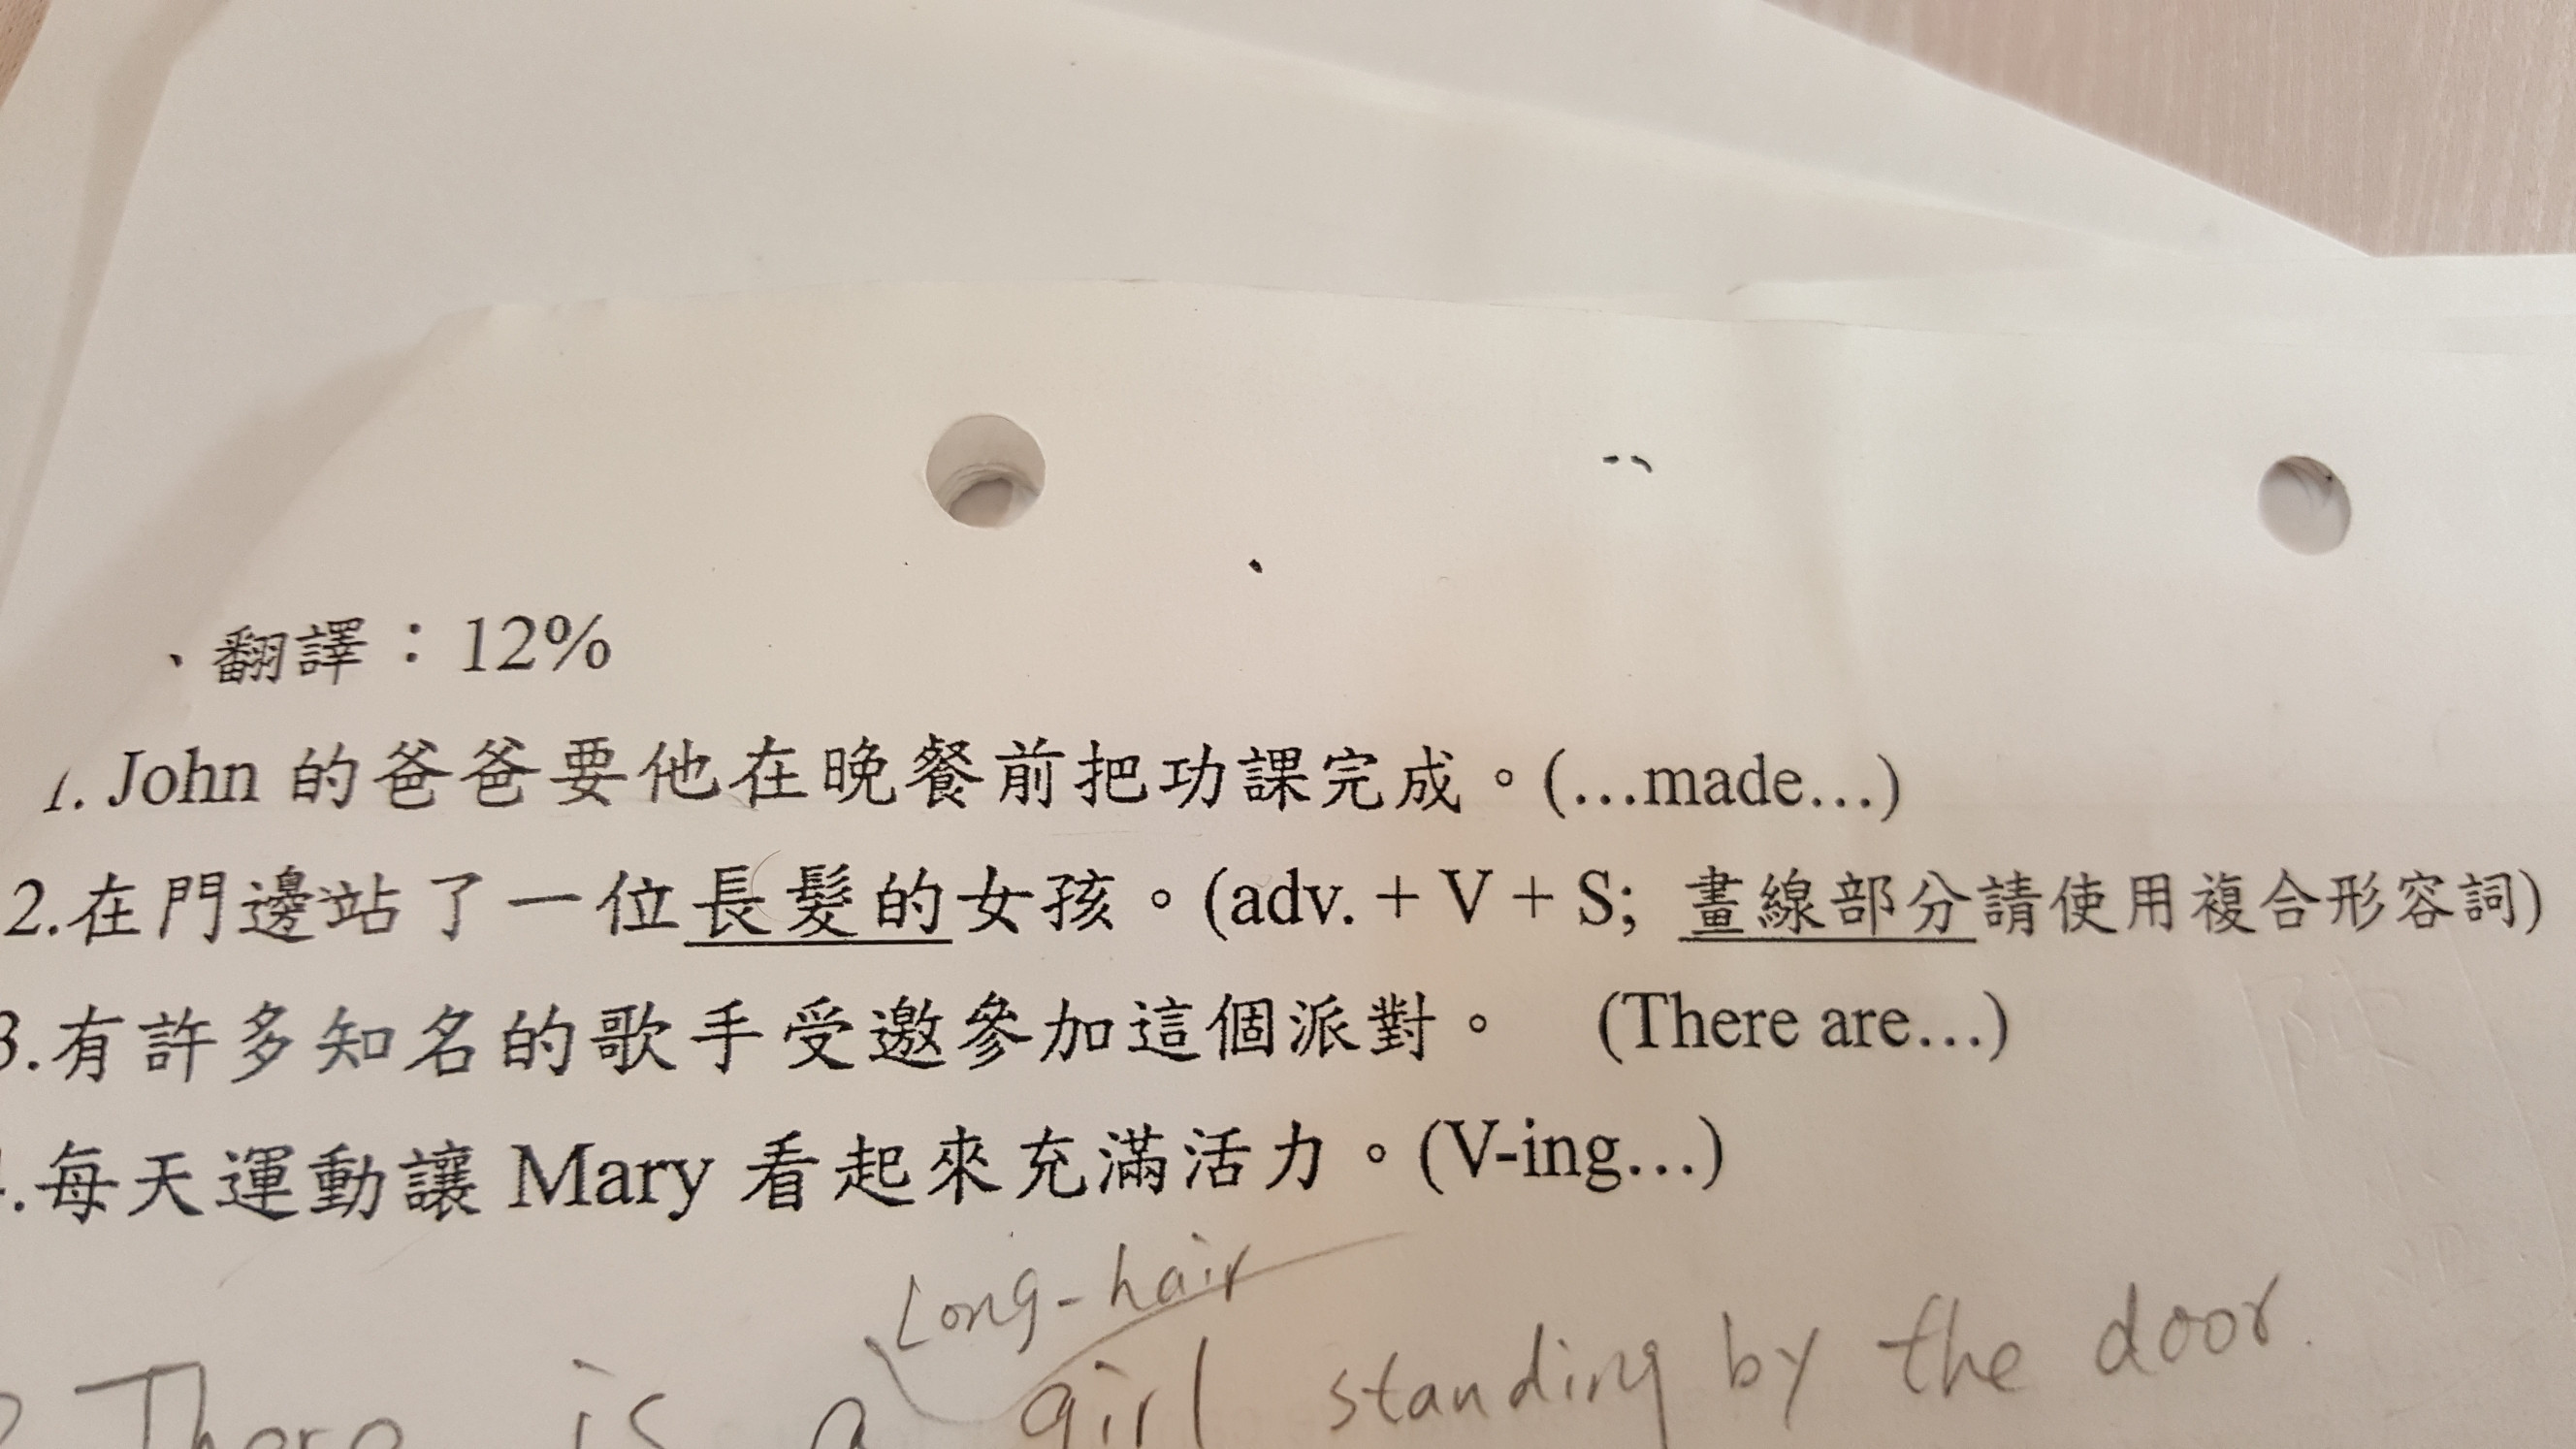 、翻譯：12%
1. John 的爸爸要他在晚餐前把功課完成。(…made…)
2.在門邊站了一位長髮的女孩。(adv. + V + S; 畫線部分請使用複合形容詞)
3.有許多知名的歌手受邀參加這個派對。 (There are…)
.每天運動讓 Mary 看起來充滿活力。(V-ing…)
Long-hair
There is a girl standing by the door.